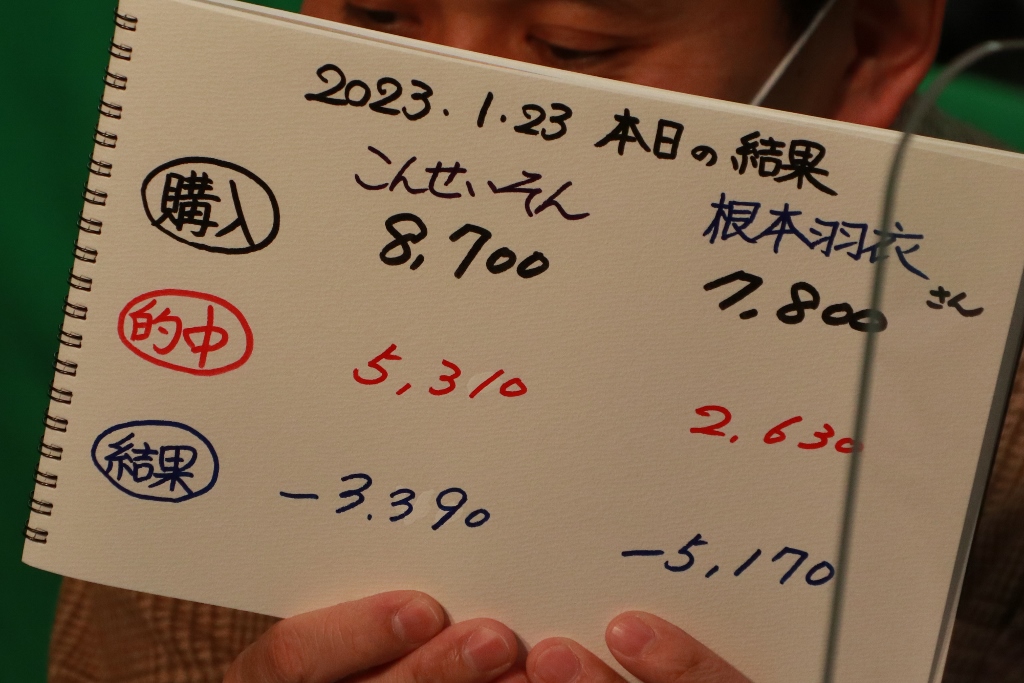 2023.1.23 本日の結果
こんせいそん 根本羽衣さん
購入 8,700 7.800
的中 5,310 2.630
結果 -3.390 -5,170